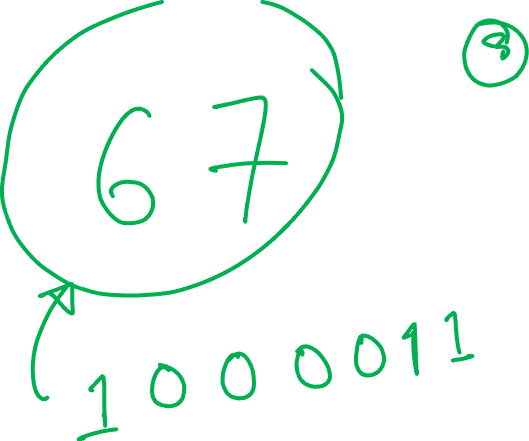 67
1000011